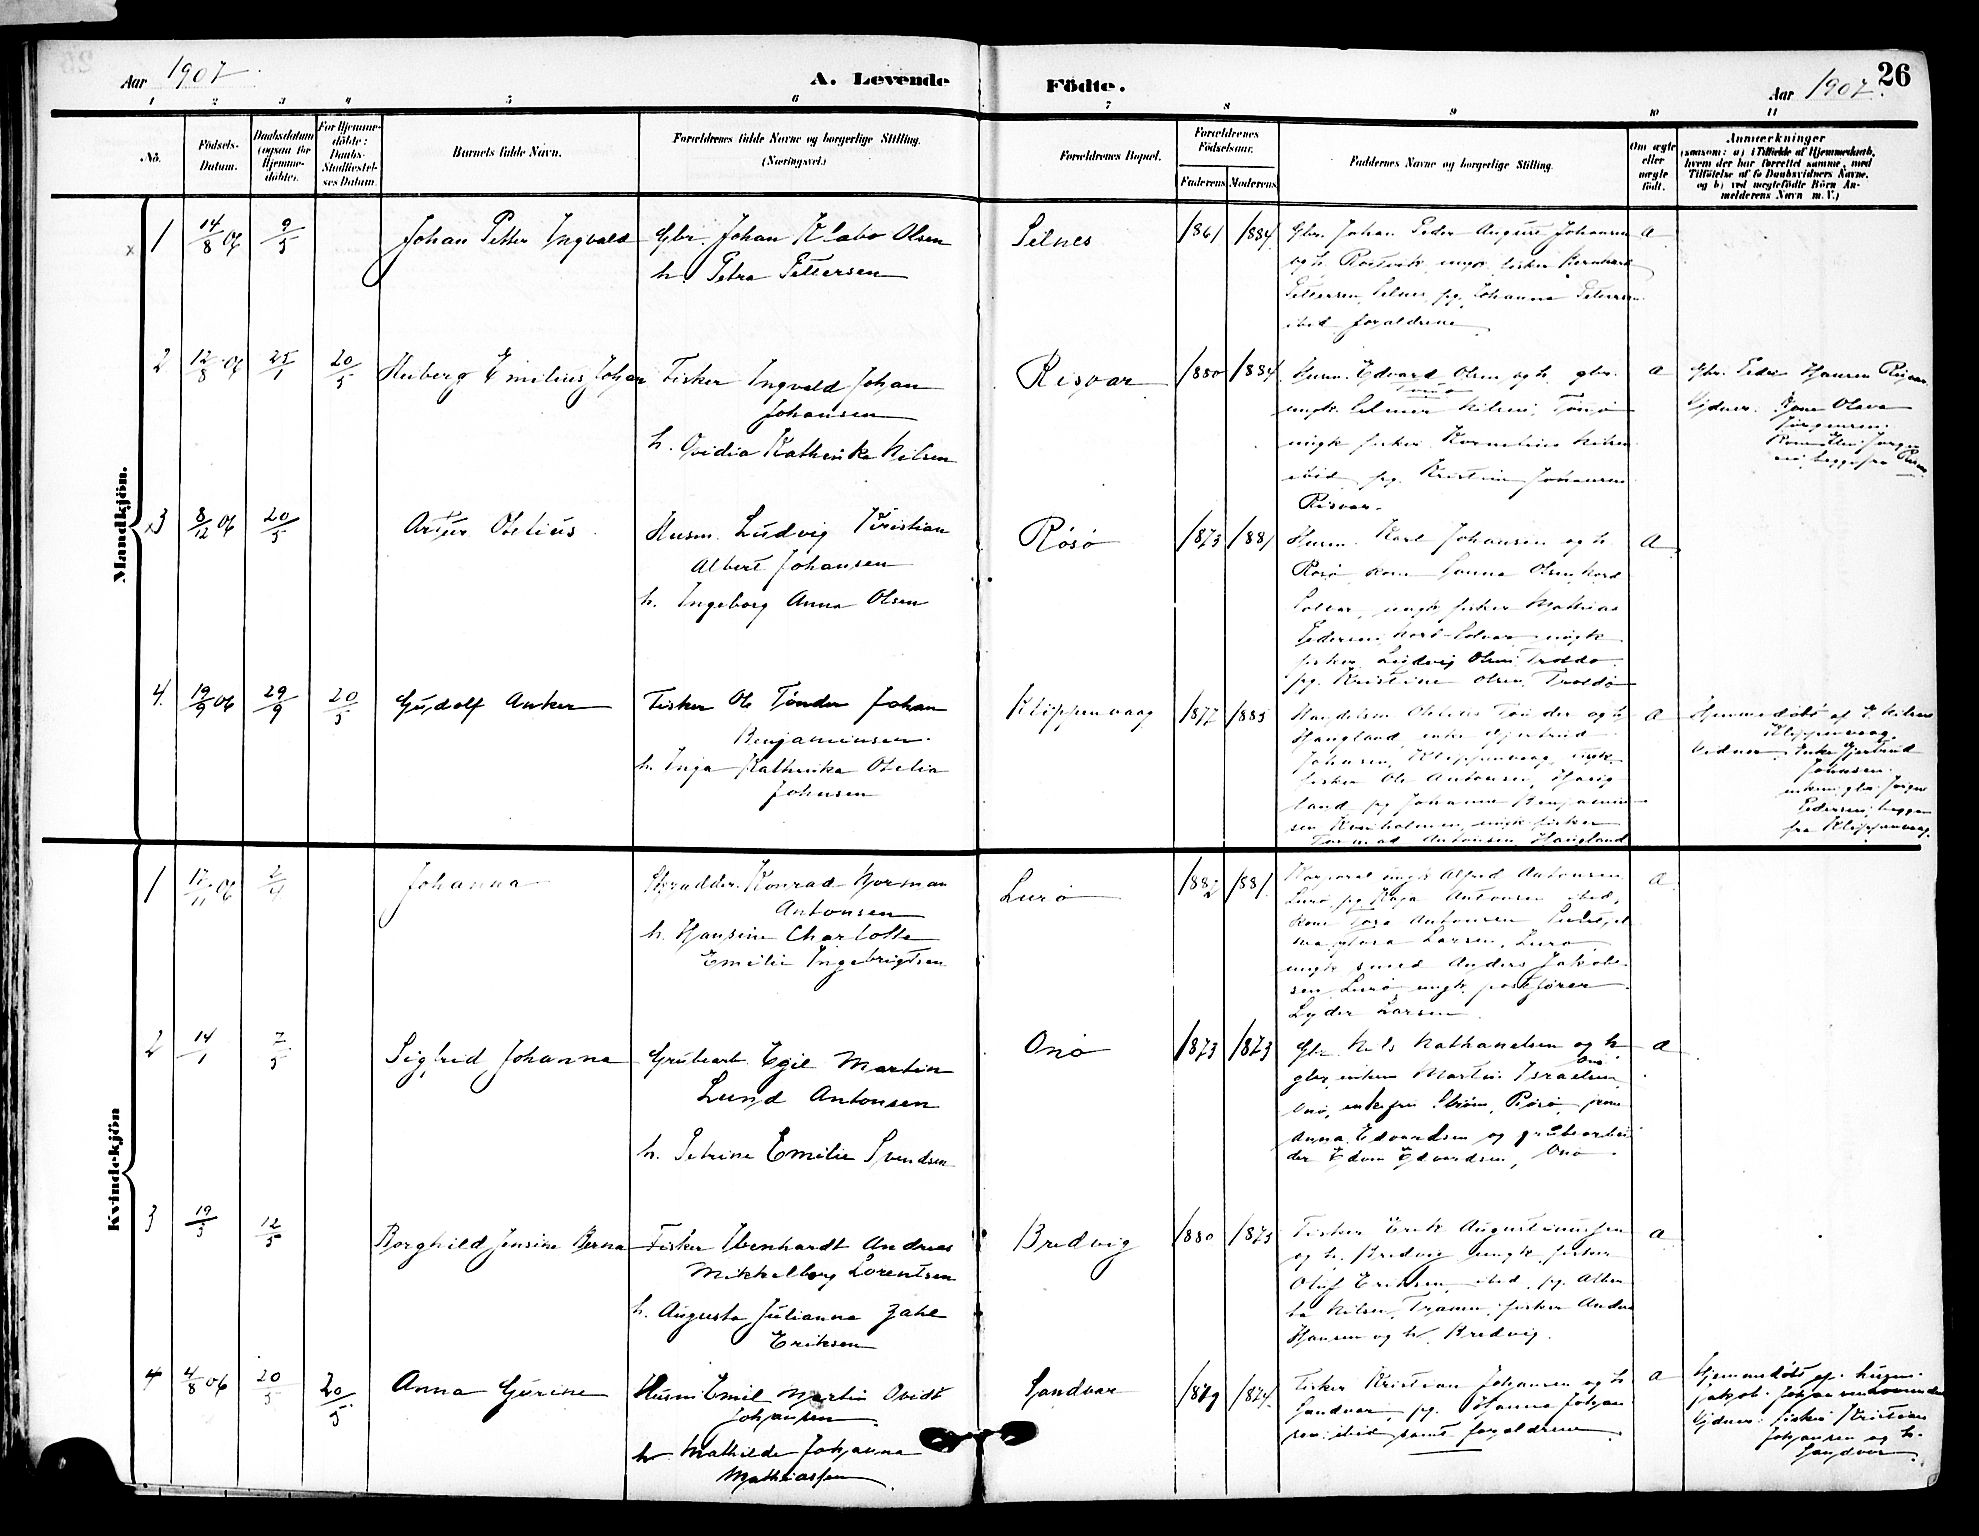 26
Aar 1907
A. Levende Födte.
Aar 1907.
1 2 3 4 5 6 7 8 9 10 11
No.
Födsels-
Datum.
Daabsdatum
(ogsaa for
Hjemme-
döbte).
For Hjemme-
döbte:
Daabs-
Stadfæstel-
ses Datum.
Barnets fulde Navn.
Forældrenes fulde Navne og borgerlige Stilling.
(Næringsvei.)
Forældrenes Bopæl.
Forældrenes
Födselsaar.
Faderens Moderens
Faddernes Navne og borgerlige Stilling.
Om ægte
eller
uægte
födt.
Anmærkninger
(saasom: a) i Tilfælde af Hjemmedaab,
hvem der har forrettet samme, med
Tilföielse af to Daabsvidners Navne.
og b) ved uægtefödte Börn An-
melderens Navn m. V.)
Mandkjön.
1 14/8 06 9/5 Johan Petter Ingvald
Gbr. Johan Klabo Olsen
h. Petra Pettersen
Selnes 1861 1884
Gbr. Johan Peder August Johansen
og h. Rostvik, ungk. fisker Bernhard
Pettersen, Selnes, pg. Johanna Pettersen
ibid foraldrene
a
2 12/8 06 25/1 20/5 Heiberg Emilius Johan
Fisker Ingvald Johan
Johansen
h. Ovidia Kathrika Nilsen
Risvær 1880 1884
Husm. Edvard Olsen og h. gbr.
ungk. Elmer Nilsen, Tonø
ungk fisker Kornelius Nilsen
ibid pg. Kristine Johansen
Risvær.
a
Gbr. Peder Hansen Risvær.
Vidner. Kone Olava
Jørgensen.
3 8/12 06 20/5 Artur Otelius
Husm. Ludvig Kristian
Albert Johansen
h. Ingeborg Anna Olsen
Rösö 1873 1881
Husm. Karl Johansen og h.
Rösö, kone Hanna Olsen, Nord
Solvær, ungk. fisker Mathias
Pedersen, Nord-Solvær, ungk
fisker Ludvig Olsen, Troldö
pg. Kristine Olsen, Troldö
a
4. 19/9 06 29/9 20/5 Gudolf Anker
Fisker Ole Tönder Johan
Benjaminsen.
h. Inga Kathrika Otelia
Johnsen
Klippenvaag 1877 1885
Handelsm. Otelius Tönder og h
Haugland, enke Gjertrud
Johnsen, Klippenvaag, ungk.
fisker Ole Antonsen, Haug
land, pg Johanna Benjamin
sen Kvinholmen, ungk fisker
Tormod Antonsen Haugland
a
Hjemmedöbt af E. Nilsen
Klippenvaag.
Vidner: Enke Gjertrud
Johnsen.
Pedersen, begge
fra Klippenvaag.
Kvindekjön
1 17/11 06 2/4 Johanna
Skrædder Konrad Norman
Antonsen
h. Hansine Charlotte
Emilie Ingebrigtsen
Lurö 1882 1881
Korporal ungk Alfred Antonsen
Lurö, pg Kaja Antonsen ibid,
Lurö
ungk smed Anders Jakob-
sen Lurö ungk. postförer
Lyder Larsen.
a
2 14/1 7/5 Sigfrid Johanna
Grubearb. Egil Martin
Lund Antonsen
h. Petrine Emilie Svendsen
Onö 1873 1873
Gbr Nils Nathanelsen og h
Onö
gbr, enkem Martin Israelsen
Onö, enkefru Ström, Rösö, kone
Anna Edvardsen og grubearbei
der Edvin Edvardsen, Onö.
a
3 19/3 12/5 Borghild Jensine Berna
Fisker Ibenhardt Andreas
Mikkelborg Lorentsen
h. Augusta Julianna Zahl
Eriksen
Bredvig 1880 1873
Fisker Erik Augustinussen
og h. Bredvig, ungk fisker
Oluf Eriksen, ibid, pg. Alber
ta Nilsen, Trænen, fisker Anders
Hansen og h. Bredvig.
a
4 4/8 06 20/5 20/5 Anna Gurine
Husm. Emil Martin Ovidt
Johansen
h. Mathilde Johanna
Mathiassen
Sandvær 1879 1874
Fisker Kristian Johansen og h
Sandvær, pg. Johanna Johan
sen ibid samt foraldrene
a
Hjemmedöbt af
Jakob Johansen
Vidner: fisker Kristian
Johansen og h.
Sandvær